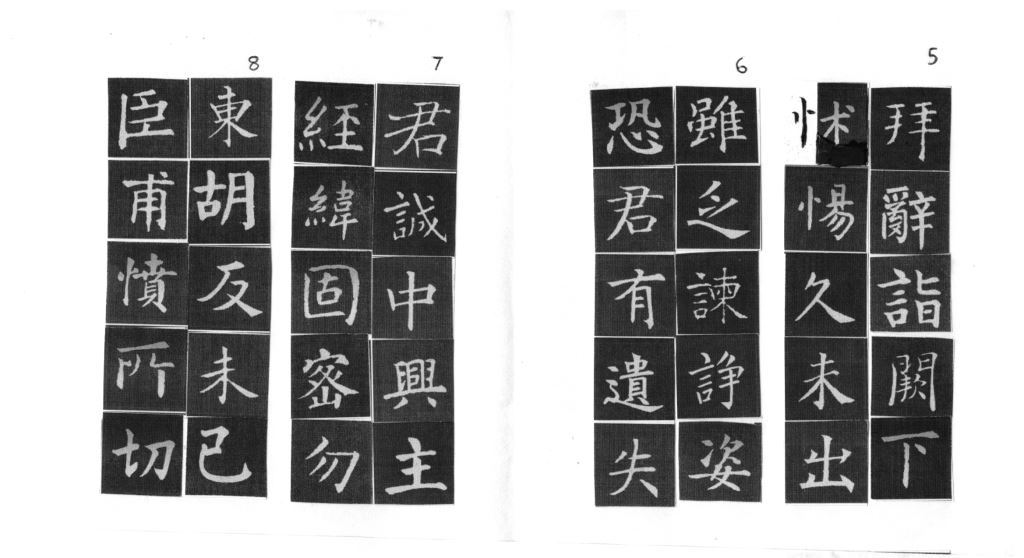 5
拜辭詣闕下
怵惕久未出
6
雖乏諫諍姿
恐君有遺失
7
君誠中興主
經緯固密勿
8
東胡反未已
臣甫憤所切